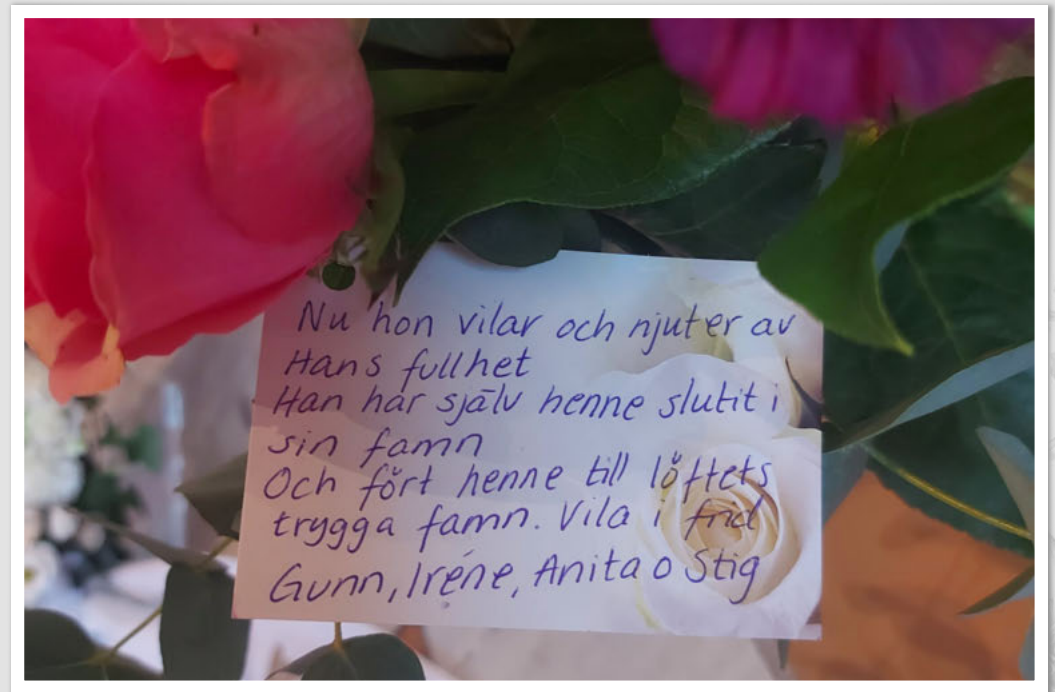 Nu hon vilar och njuter av
Hans fullhet
Han har själv henne slutit i
sin famn
Och fört henne till löftets
trygga famn. Vila i frid
Gunn, Iréne, Anita o Stig